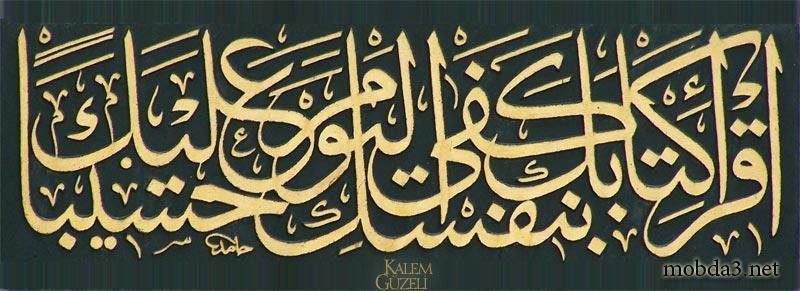 اقرأ كتابك كفى بنفسك اليوم عليك حسيبا
حامد
KALEM
GÜZELİ
mobda3.net